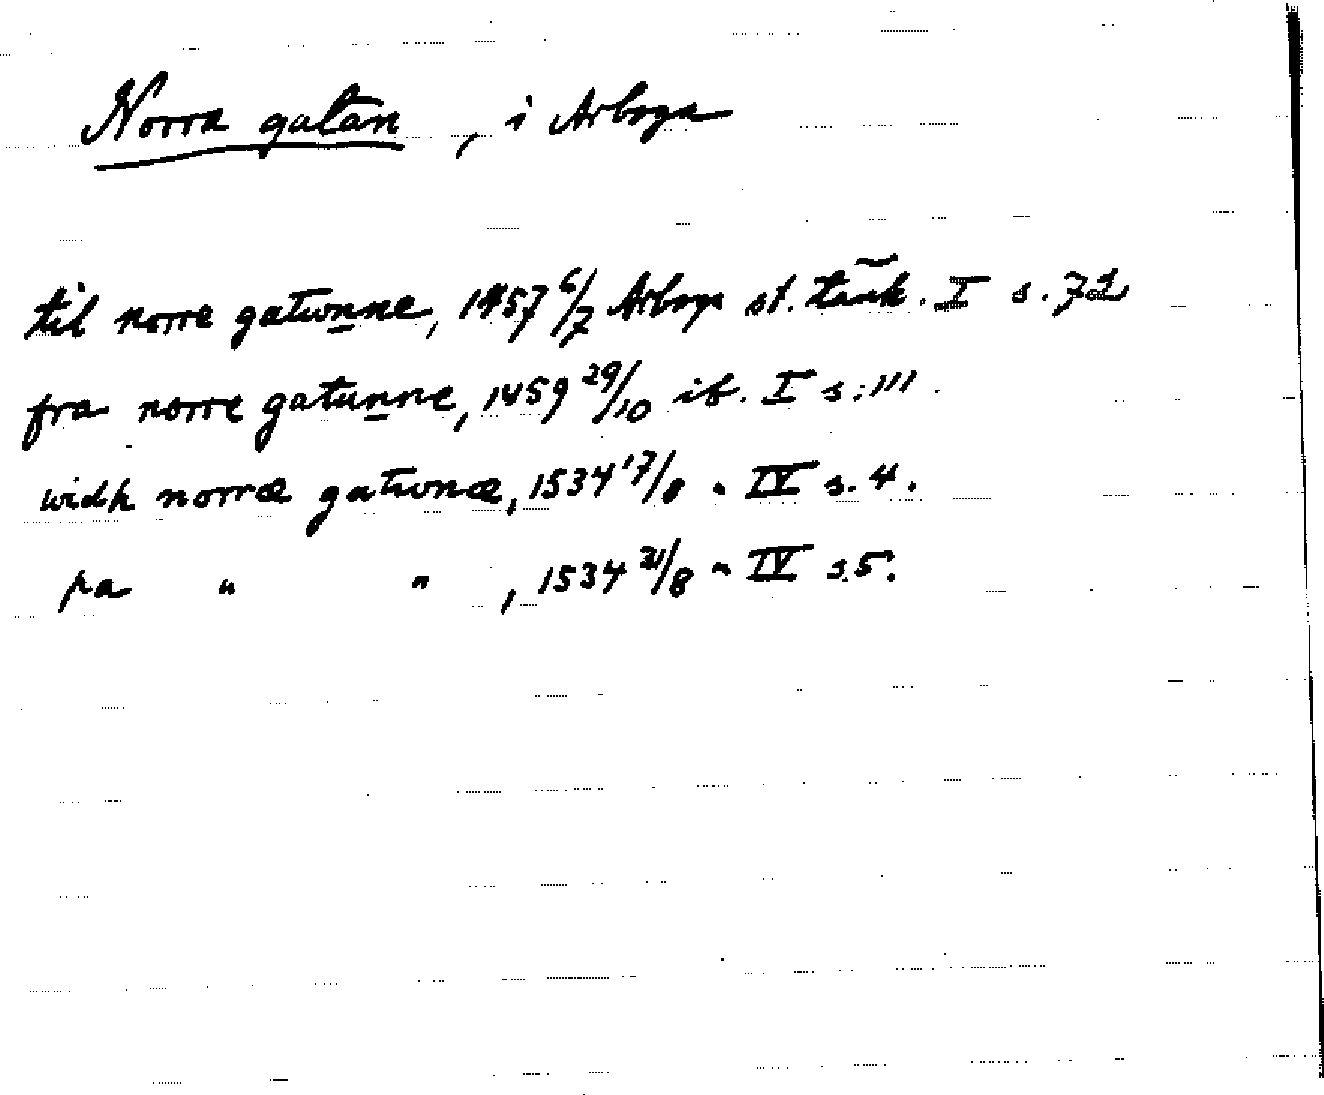 Norra gatan, i Arboga
til norre gatwnne, 1457 6/7 Arboga st. tänk. I s. 72
fra norre gatunne, 1459 29/10 ib. I s. 111.
widh norræ gatwnæ, 1534 17/8 " IV s. 4.
pa " ", 1534 31/8 " IV s. 5.